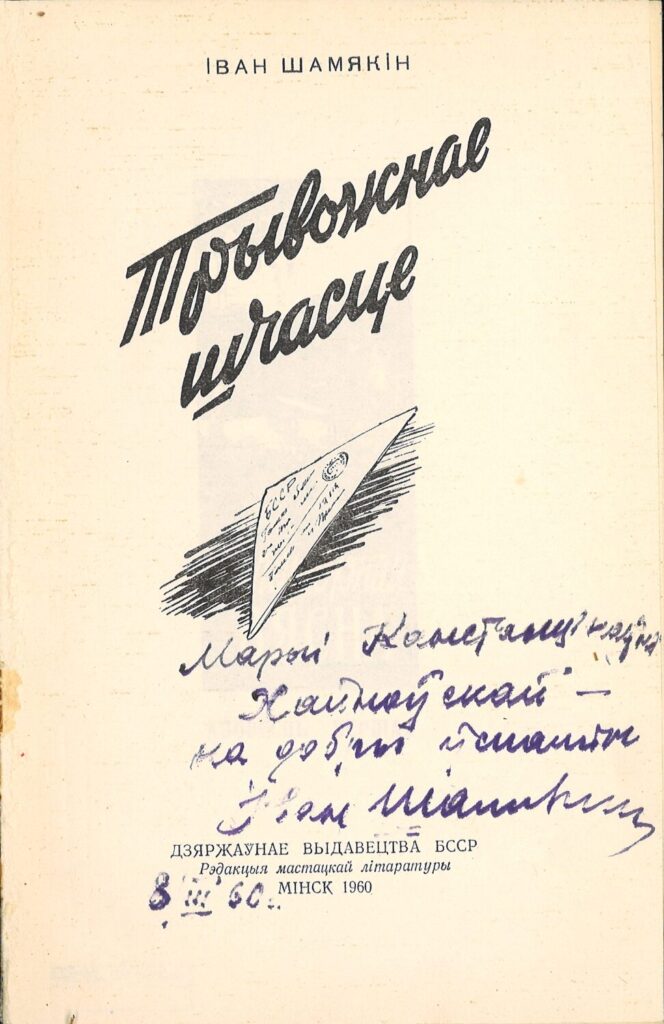 ІВАН ШАМЯКІН
Трывожнае
шчасце
БССР
Марыі Канстанцінаўне
Хайноўскай —
на добры ўспамін
Іван Шамякін
ДЗЯРЖАУНАЕ ВЫДАВЕЦТВА БССР
Рэдакцыя мастацкай літаратуры
МІНСК 1960
8 III 60 г.